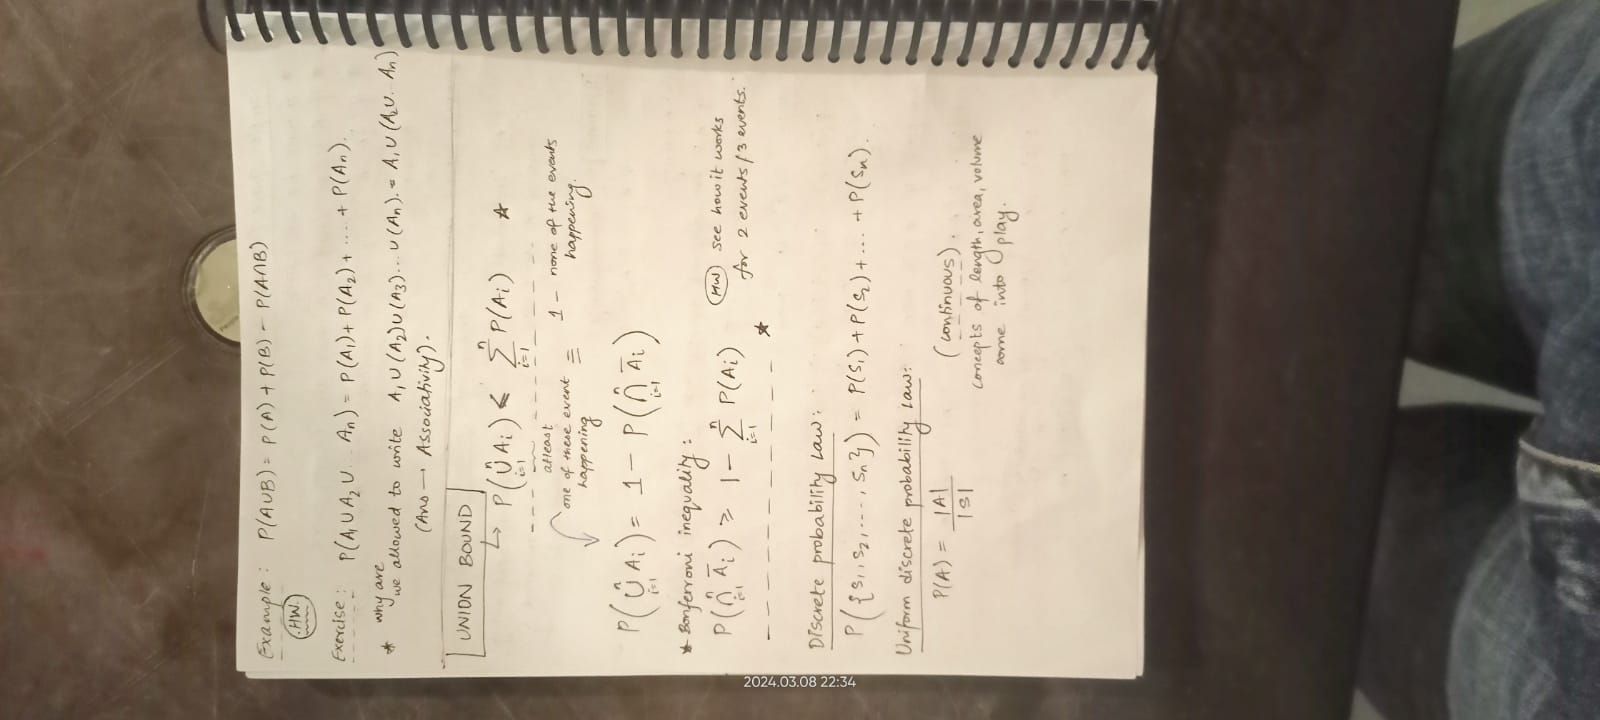 Example : P(A∪B) = P(A) + P(B) - P(A∩B)
HW.
Exercise : P(A₁ ∪ A₂ ∪ .. Aₙ) = P(A₁) + P(A₂) + .... + P(Aₙ).
* why are
we allowed to write A₁ ∪ (A₂) ∪ (A₃) ... ∪ (Aₙ). = A₁ ∪ (A₂ ∪ .. Aₙ)
(Ans → Associativity).
UNION BOUND
↳ P(⋃ᵢ₌₁ⁿ Aᵢ) ≤ ∑ᵢ₌₁ⁿ P(Aᵢ) ☆
atleast
one of these event happening ≡ 1 - none of the events happening.
P(⋃ᵢ₌₁ⁿ Aᵢ) = 1 - P(⋂ᵢ₌₁ⁿ A̅ᵢ)
* Bonferroni inequality :
P(⋂ᵢ₌₁ⁿ A̅ᵢ) ≥ 1 - ∑ᵢ₌₁ⁿ P(Aᵢ) ☆
HW see how it works
for 2 events / 3 events.
Discrete probability Law :
P({s₁, s₂, ...., sₙ}) = P(s₁) + P(s₂) + ... + P(sₙ).
Uniform discrete probability Law :
P(A) = |A| / |S|
(continuous).
concepts of length, area, volume
come into play.
2024.03.08 22:34